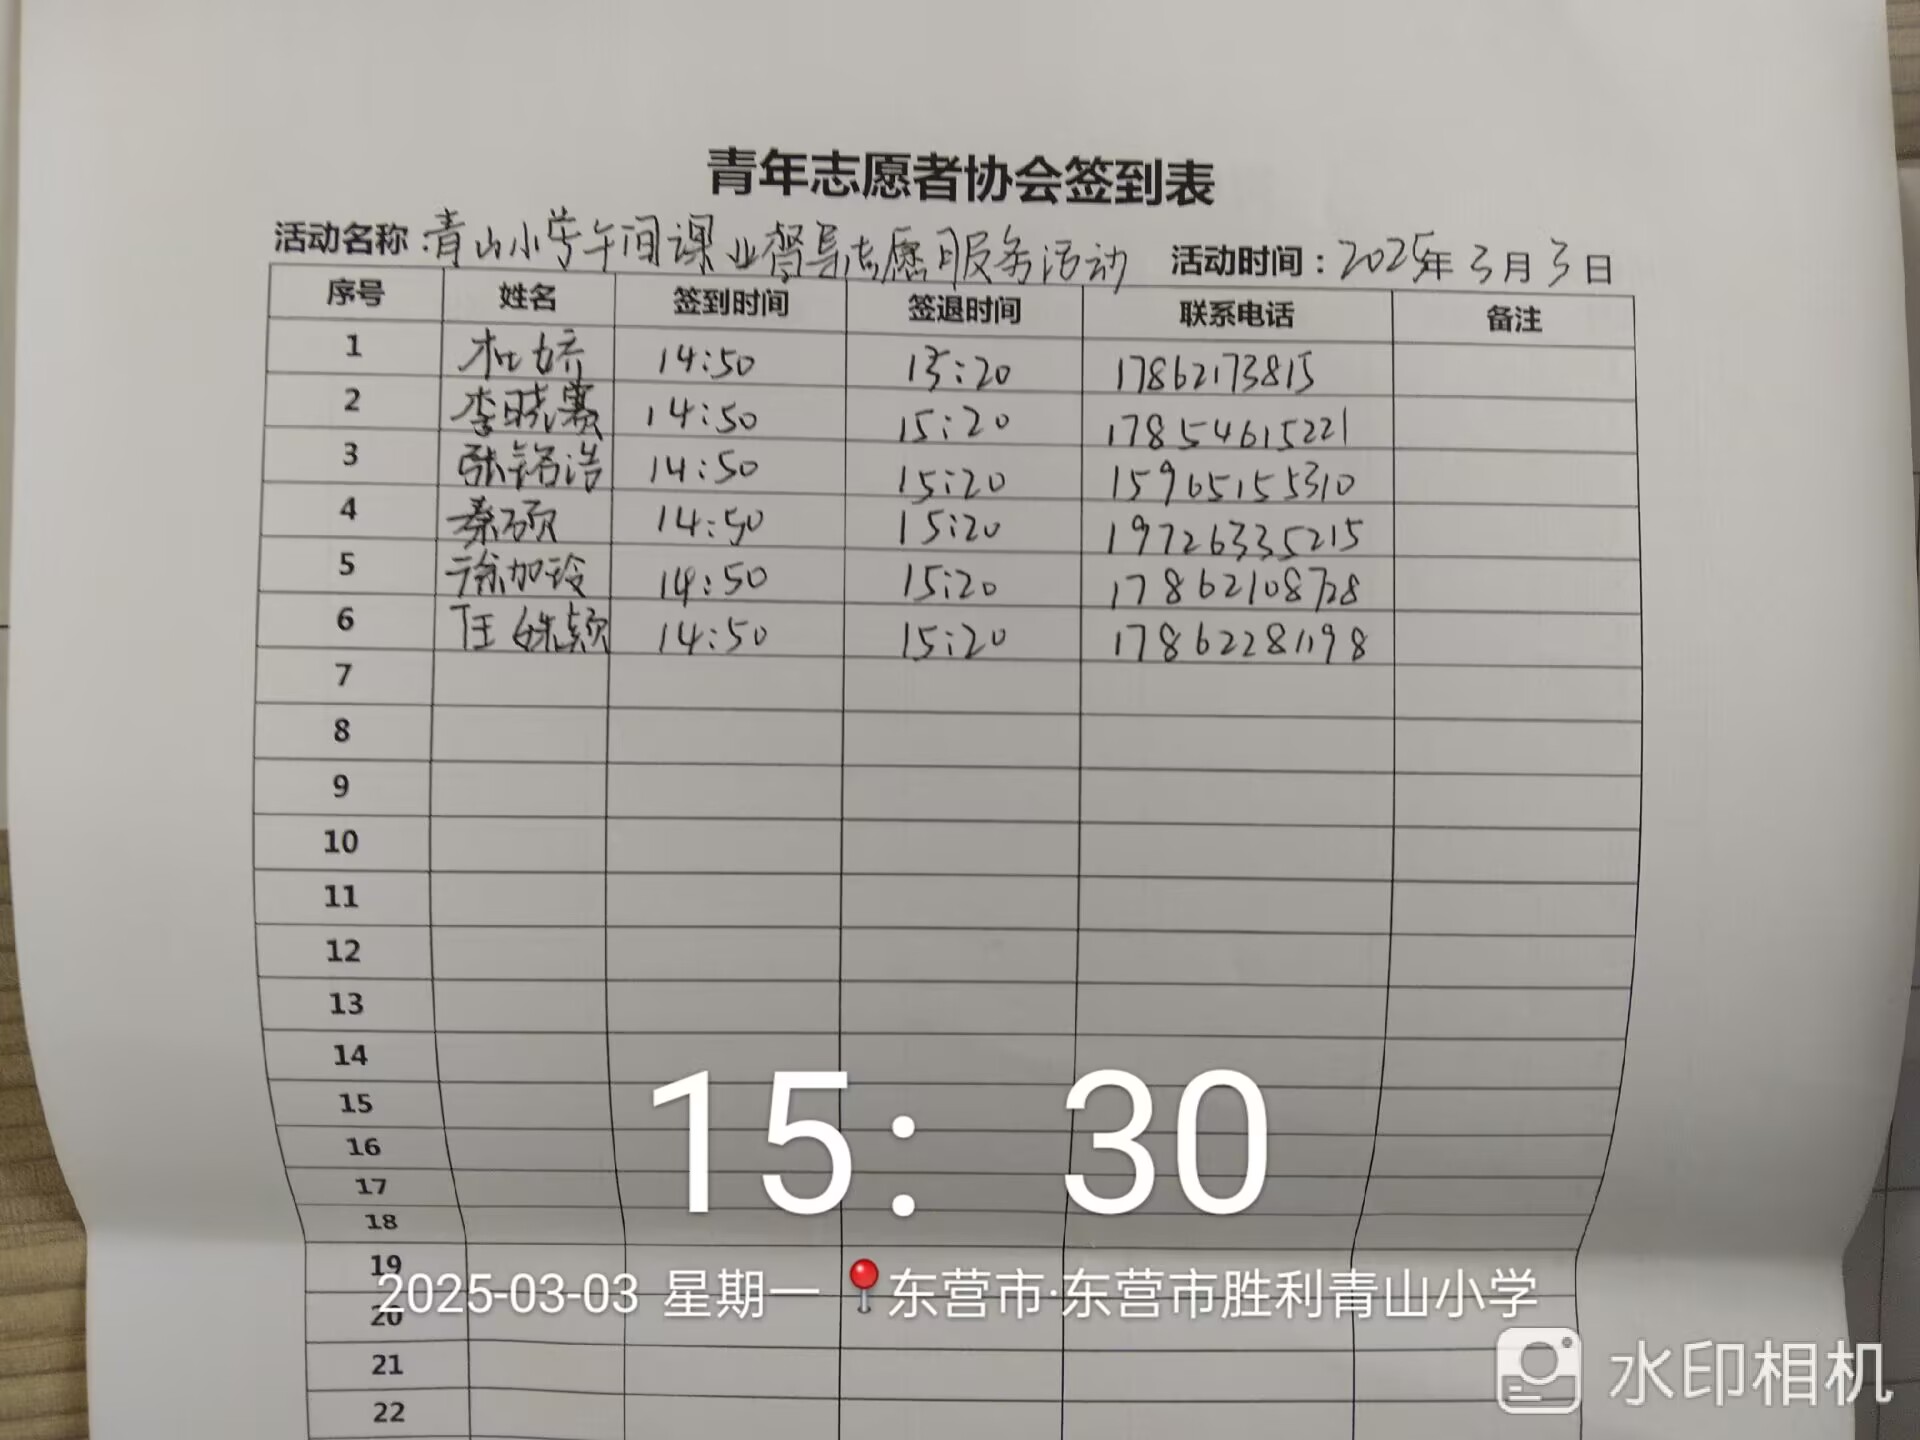 青年志愿者协会签到表
活动名称:青山小学午间课业督导志愿服务活动 活动时间:2025年3月3日
序号 姓名 签到时间 签退时间 联系电话 备注
1 杜娇 14:50 15:20 17862173815
2 李晓赛 14:50 15:20 17854615221
3 张铭浩 14:50 15:20 15965155310
4 秦硕 14:50 15:20 19726335215
5 徐加玲 14:50 15:20 17862108728
6 任姝颖 14:50 15:20 17862281198
7
8
9
10
11
12
13
14
15
16
17
18
19
20
21
22
15:30
2025-03-03 星期一 东营市·东营市胜利青山小学
水印相机